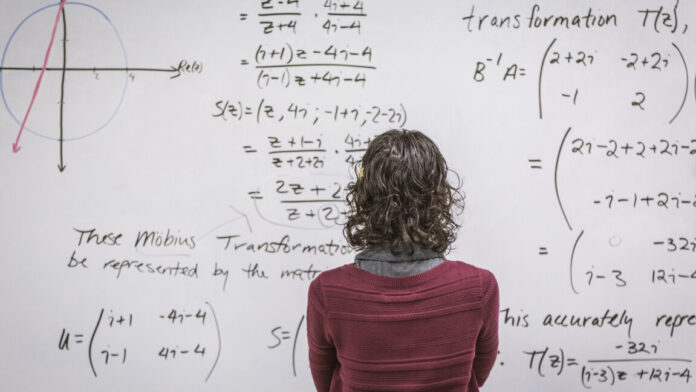 = z-4/z+4 · 4i+4/4i-4
= (i+1)z-4i-4/(i-1)z+4i-4
Re(z)
S(z)=(z, 4i; -1+i, -2-2i)
= z+1-i/z+2+2i ·
= 2z+2
z+
These Möbius Transformation
be represented by the
U= (i+1 -4i-4
i-1 4i-4)
S=
transformation T(z),
B⁻¹A= (2+2i -2+2i
-1 2)
= (2i-2+2+2i-
-i-1+2i-
= ( -32i
i-3 12i-4
accurately
T(z)= -32i/(i-3)z+12i-4